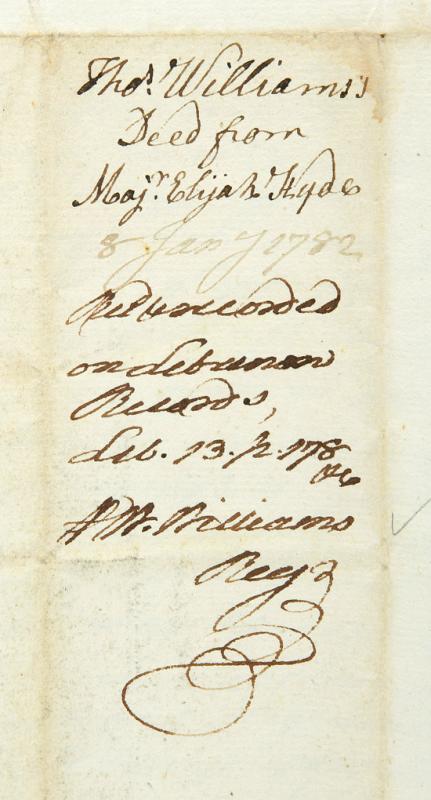 Thos. Williams's
Deed from
Majr. Elijah Hyde
8 Jany 1782
Recd & recorded
on Lebanon
Records,
Lib. 13. p. 178
Wm. Williams
Regr